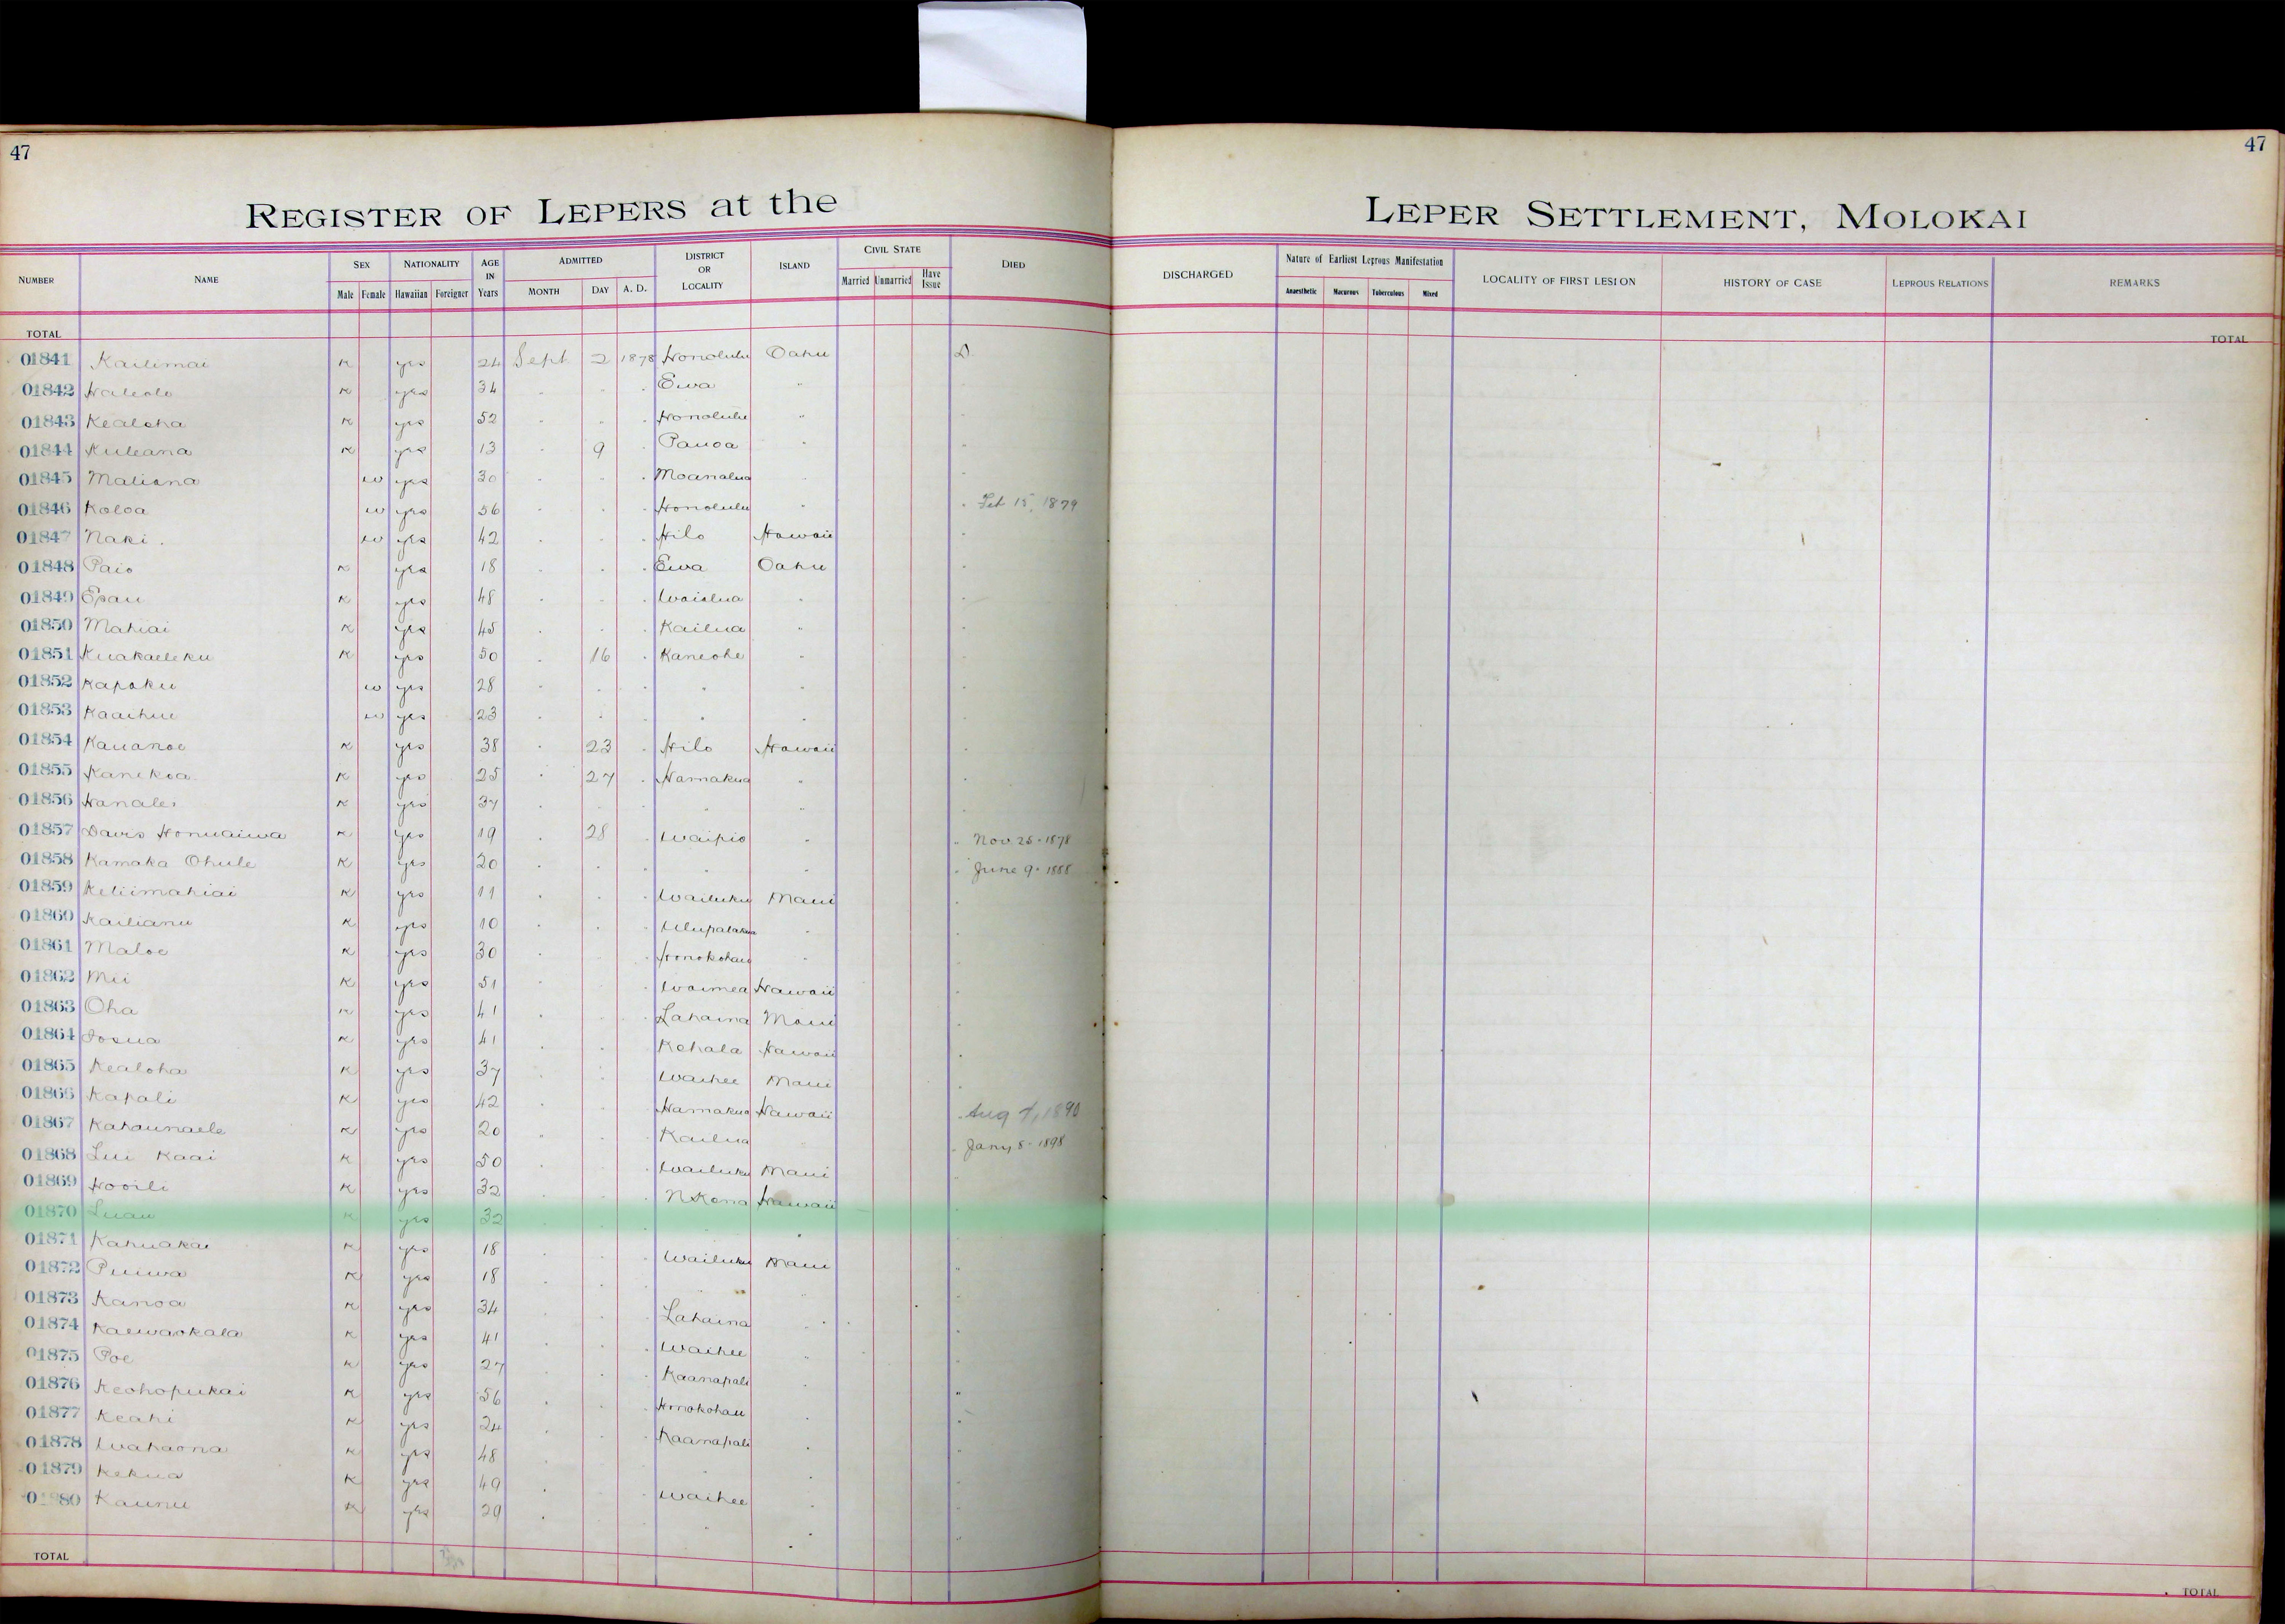 47
47
REGISTER OF LEPERS at the LEPER SETTLEMENT, MOLOKAI
NUMBER NAME SEX NATIONALITY AGE IN Years ADMITTED DISTRICT OR LOCALITY ISLAND CIVIL STATE DIED DISCHARGED Nature of Earliest Leprous Manifestation LOCALITY OF FIRST LESION HISTORY OF CASE LEPROUS RELATIONS REMARKS
Male Female Hawaiian Foreigner MONTH DAY A. D. Married Unmarried Have Issue Anaesthetic Macurous Tuberculous Mixed
TOTAL TOTAL
01841 Kailimai K yes 24 Sept 2 1878 Honolulu Oahu D
01842 Haleolo K yes 34 " " " Ewa "
01843 Kealoha K yes 52 " " " Honolulu "
01844 Kuleana K yes 13 " 9 " Pauoa "
01845 Maliana w yes 30 " " " Moanalua "
01846 Koloa w yes 56 " " " Honolulu " " Feb 15, 1879
01847 Naki w yes 42 " " " Hilo Hawaii "
01848 Paio K yes 18 " " " Ewa Oahu "
01849 Epau K yes 48 " " " Waialua " "
01850 Mahiai K yes 45 " " " Kailua " "
01851 Kuakaeleku K yes 50 " 16 " Kaneohe " "
01852 Kapoku w yes 28 " " " " " "
01853 Kaaihue w yes 23 " " " " " "
01854 Kauanoe K yes 38 " 23 " Hilo Hawaii "
01855 Kanekoa K yes 25 " 27 " Hamakua " "
01856 Hanalei K yes 37 " " " " " "
01857 Davis Honuaiwa K yes 19 " 28 " Waipio " " Nov 25 - 1878
01858 Kamaka Ohule K yes 20 " " " " " " June 9 - 1888
01859 Keliimahiai K yes 11 " " " Wailuku Maui "
01860 Kailianu K yes 10 " " " Ulupalakua " "
01861 Maloe K yes 30 " " " Honokohau " "
01862 Mii K yes 51 " " " Waimea Hawaii "
01863 Oha K yes 41 " " " Lahaina Maui "
01864 Iosua K yes 41 " " " Kohala Hawaii "
01865 Kealoha K yes 37 " " " Waihee Maui "
01866 Kapali K yes 42 " " " Hamakua Hawaii " Aug 7, 1890
01867 Kahaunaele K yes 20 " " " Kailua " " Jany 8 - 1898
01868 Lui Kaai K yes 50 " " " Wailuku Maui "
01869 Hooili K yes 32 " " " N Kona Hawaii "
01870 Luau K yes 32 " " " " " "
01871 Kahuakai K yes 18 " " " Wailuku Maui "
01872 Puiwa K yes 18 " " " " " "
01873 Kanoa K yes 34 " " " Lahaina " "
01874 Kaewaokala K yes 41 " " " Waihee " "
01875 Poe K yes 27 " " " Kaanapali " "
01876 Keohopukai K yes 56 " " " Honokohau " "
01877 Keahi K yes 24 " " " Kaanapali " "
01878 Wahaona K yes 48 " " " " " "
01879 Kekua K yes 49 " " " Waihee " "
01880 Kaunu K yes 29 " " " " " "
TOTAL TOTAL